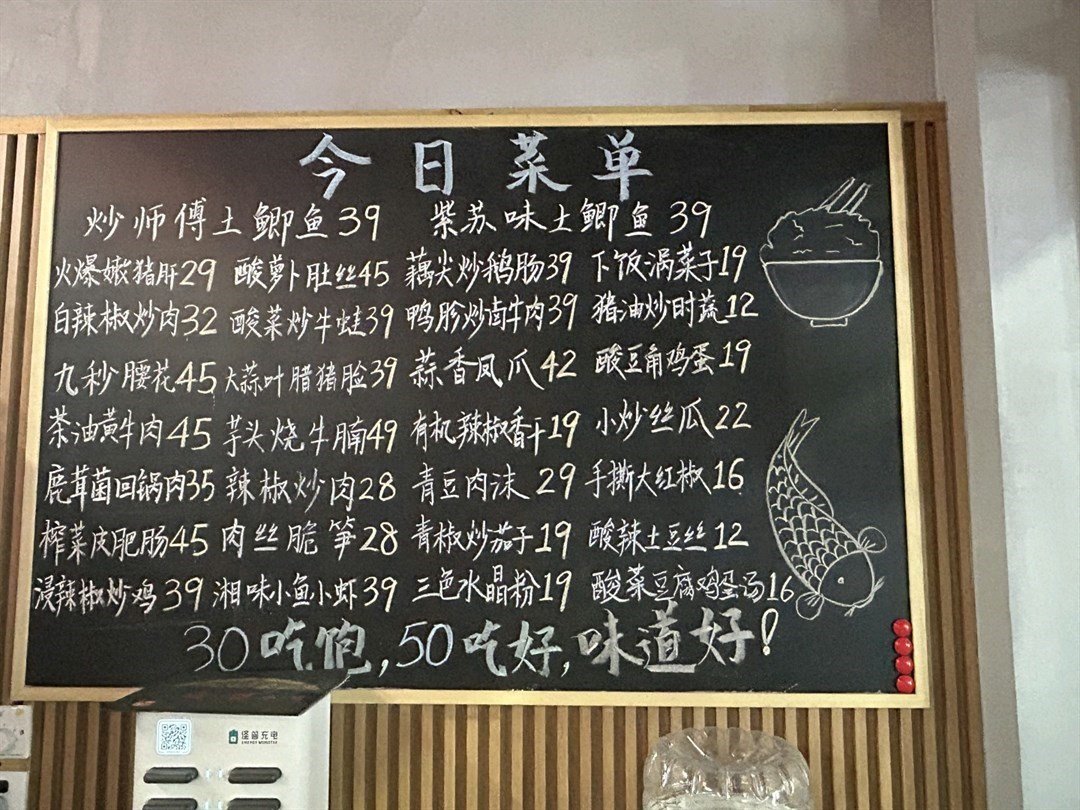 今日菜单
炒师傅土鲫鱼39 紫苏味土鲫鱼39
火爆嫩猪肝29 酸萝卜肚丝45 藕尖炒鹅肠39 下饭涡菜子19
白辣椒炒肉32 酸菜炒牛蛙39 鸭胗炒卤牛肉39 猪油炒时蔬12
九秒腰花45 大蒜叶腊猪脸39 蒜香凤爪42 酸豆角鸡蛋19
茶油黄牛肉45 芋头烧牛腩49 有机辣椒香干19 小炒丝瓜22
鹿茸菌回锅肉35 辣椒炒肉28 青豆肉沫29 手撕大红椒16
榨菜皮肥肠45 肉丝脆笋28 青椒炒茄子19 酸辣土豆丝12
浸辣椒炒鸡39 湘味小鱼小虾39 三色水晶粉19 酸菜豆腐鸡蛋汤16
30吃饱,50吃好,味道好!
怪兽充电
ENERGY MONSTER